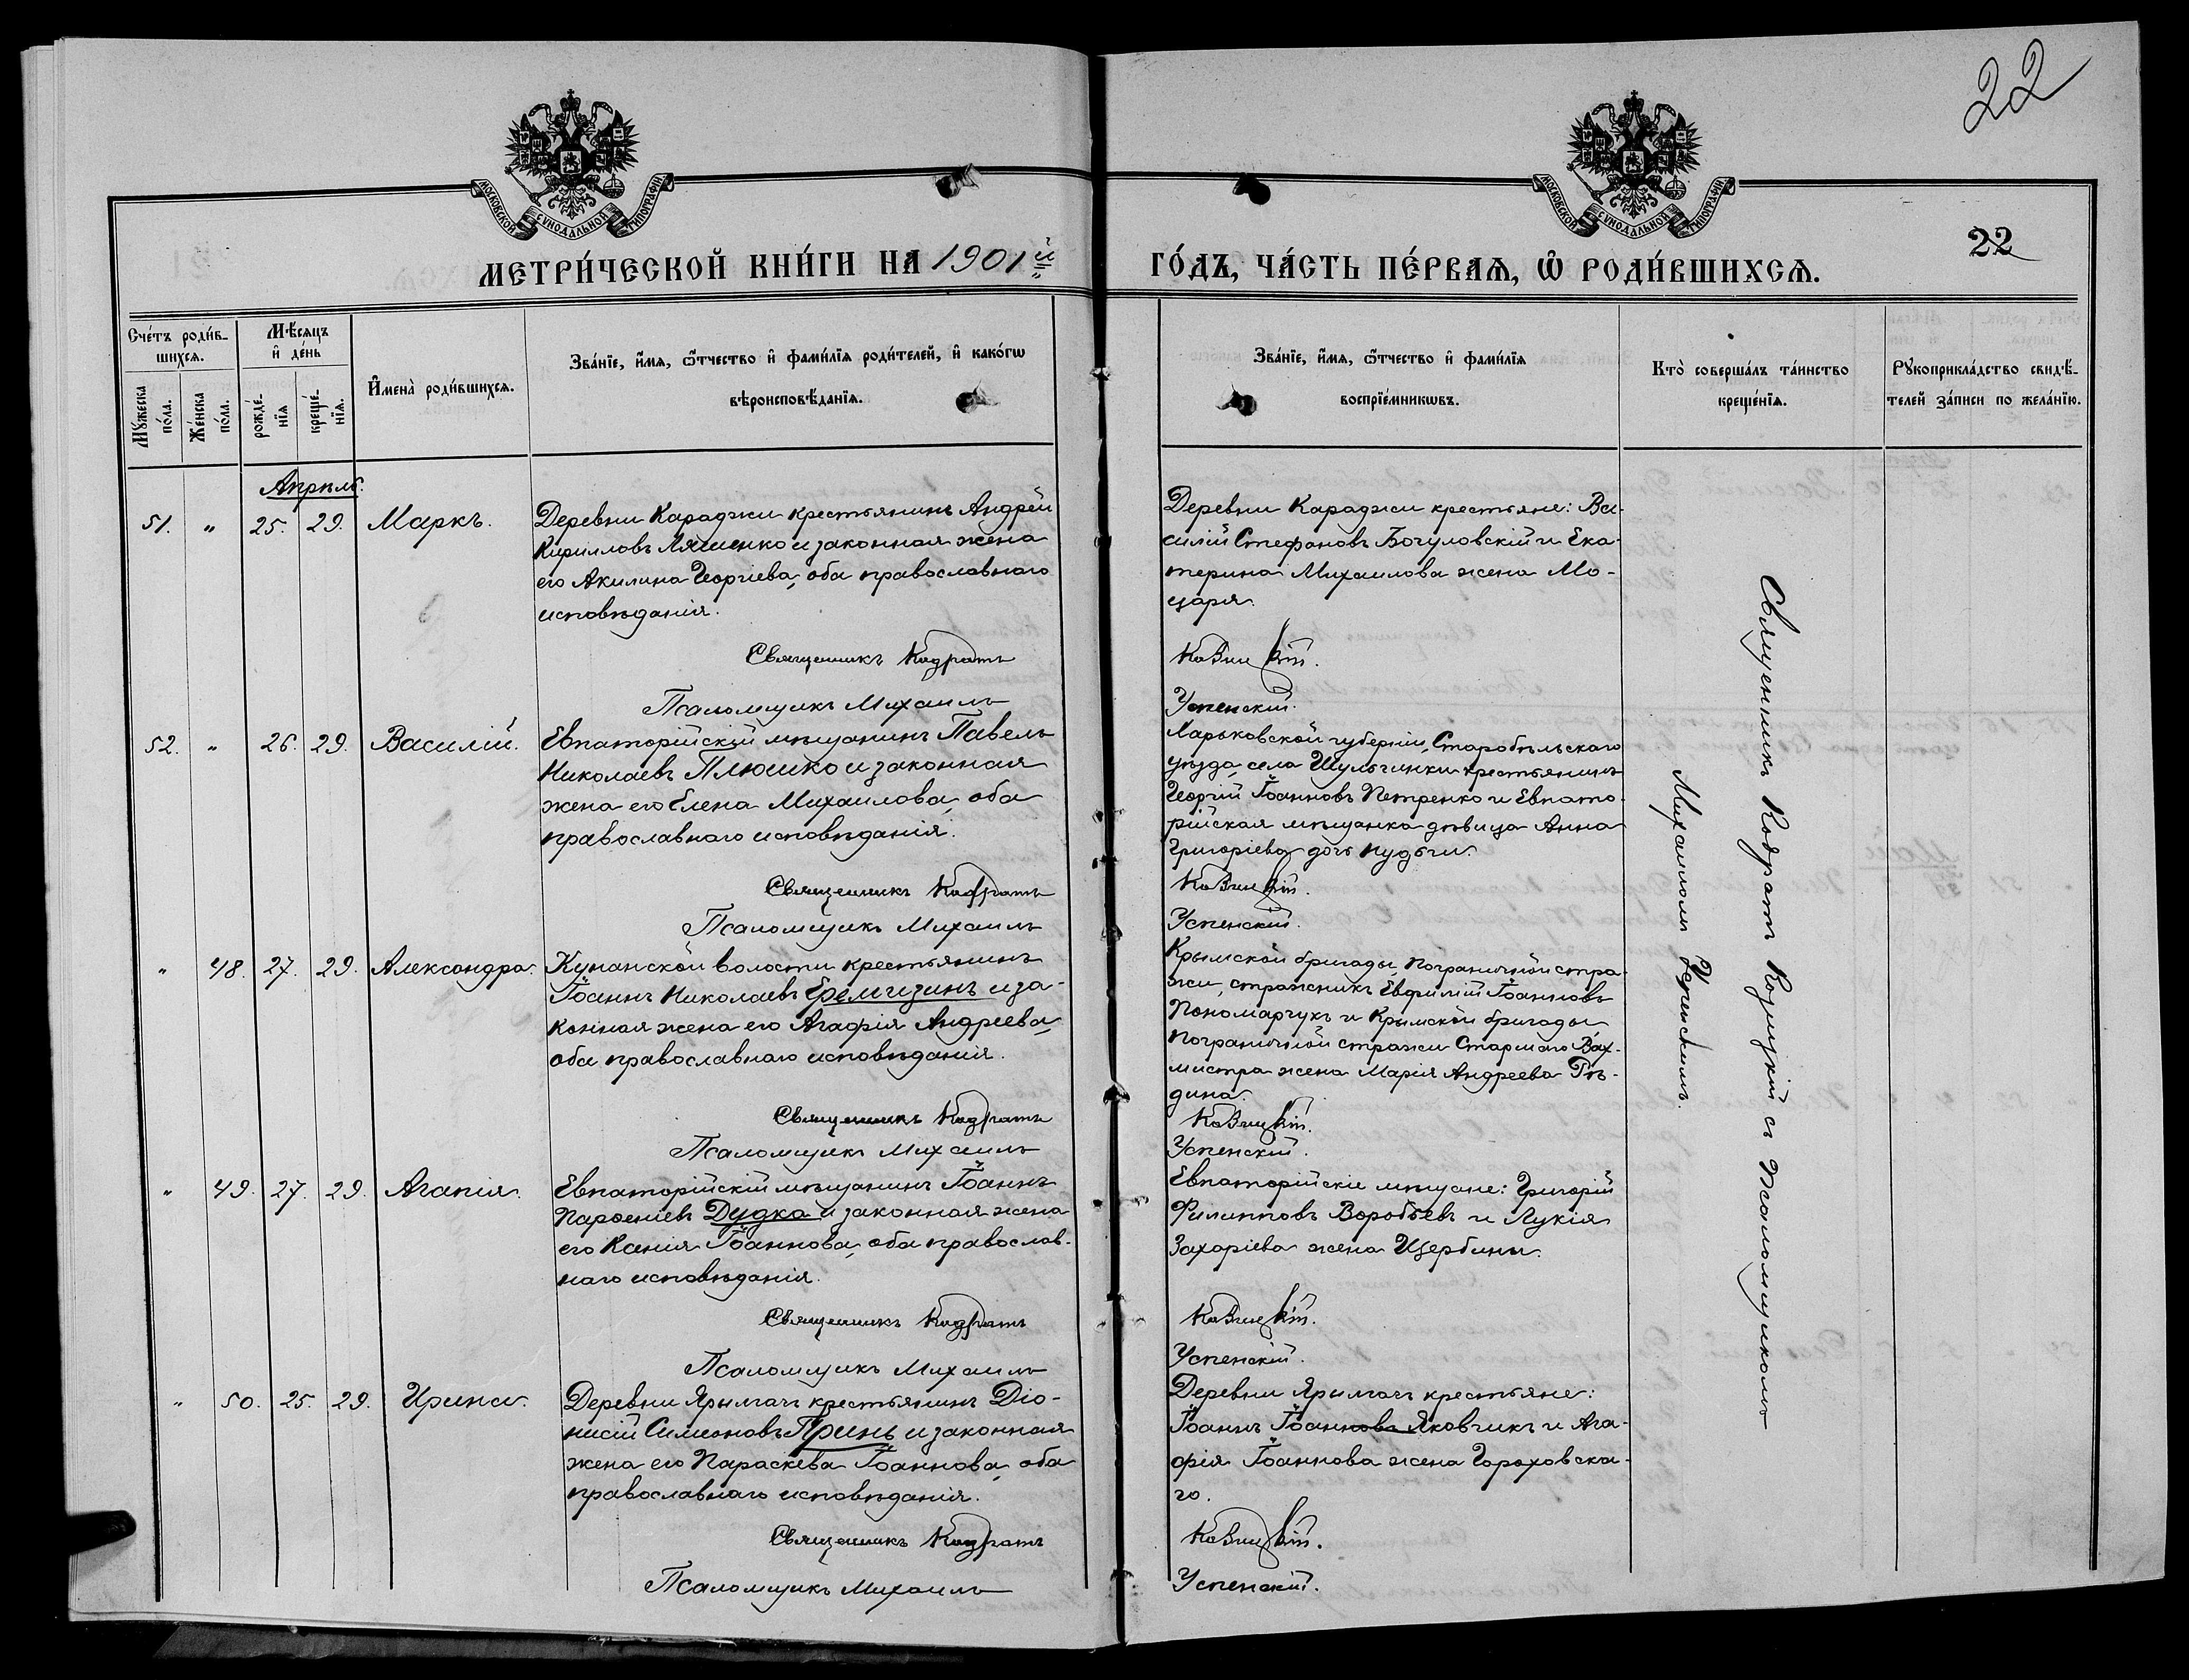 22
МОСКОВСКОЙ СѴНОДАЛЬНОЙ ТИПОГРАФІИ.
МОСКОВСКОЙ СѴНОДАЛЬНОЙ ТИПОГРАФІИ.
МЕТРИ́ЧЕСКОЙ КНИ́ГИ НА 1901й
ГО́ДЪ, ЧА́СТЬ ПЕ́РВАѦ, Ѡ҆ РОДИ́ВШИХСѦ.
22
Сче́тъ роди́в-
шихсѧ.
Мѹ́жеска
по́ла.
Же́нска
по́ла.
Мѣ́сѧцъ
и҆ де́нь
рожде́-
нїѧ
креще́-
нїѧ.
И҆мена̀ роди́вшихсѧ.
Зва́нїе, и҆́мѧ, ѻ҆́тчество и҆ фами́лїѧ роди́телей, и҆ како́гѡ
вѣроисповѣ́данїѧ.
Зва́нїе, и҆́мѧ, ѻ҆́тчество и҆ фами́лїѧ
воспрїе́мникѡвъ.
Кто̀ соверша́лъ та́инство
креще́нїѧ.
Рѹкоприкла́дство свидѣ́-
телей за́писи по жела́нїю.
Апрѣль.
51. " 25. 29. Маркъ.
Деревни Караджи крестьянинъ Андрей
Кирилловъ Ляшенко и законная жена
его Акилина Георгіева, оба православнаго
исповѣданія.
Священникъ Кодратъ
Псаломщикъ Михаилъ
Деревни Караджи крестьяне: Ва-
силій Стефановъ Богуловскій и Ека-
терина Михаилова жена Мо-
царя.
Козицкій.
Успенскій.
52. " 26. 29. Василій.
Евпаторійскій мѣщанинъ Павелъ
Николаевъ Плюшко и законная
жена его Елена Михаилова, оба
православнаго исповѣданія.
Священникъ Кодратъ
Псаломщикъ Михаилъ
Харьковской губерніи, Старобѣльскаго
уѣзда, села Шульгинки крестьянинъ
Георгій Іоанновъ Петренко и Евпато-
рійская мѣщанка дѣвица Анна
Григоріева дочь Кудьги.
Козицкій.
Успенскій.
" 48. 27. 29. Александра.
Кунанской волости крестьянинъ
Іоаннъ Николаевъ Ермизинъ и за-
конная жена его Агафія Андреева,
оба православнаго исповѣданія.
Священникъ Кодратъ
Псаломщикъ Михаилъ
Крымской бригады, пограничной стра-
жи, стражникъ Евфимій Іоанновъ
Пономарчукъ и Крымской бригады
пограничной стражи Старшаго Вах-
мистра жена Марія Андреева Гѣ-
дина.
Козицкій.
Успенскій.
" 49. 27. 29. Агапія.
Евпаторійскій мѣщанинъ Іоаннъ
Парѳеніевъ Дудка и законная жена
его Ксенія Іоаннова, оба православ-
наго исповѣданія.
Священникъ Кодратъ
Псаломщикъ Михаилъ
Евпаторійскіе мѣщане: Григорій
Филипповъ Воробьевъ и Лукія
Захаріева жена Щербины.
Козицкій.
Успенскій.
" 50. 25. 29. Ирина.
Деревни Ярылгачъ крестьянинъ Діо-
нисій Симеоновъ Гринь и законная
жена его Параскева Іоаннова, оба
православнаго исповѣданія.
Священникъ Кодратъ
Псаломщикъ Михаилъ
Деревни Ярылгачъ крестьяне:
Іоаннъ Іоанновъ Яковчикъ и Ага-
фія Іоаннова жена Гороховска-
го.
Козицкій.
Успенскій.
Священникъ Кодратъ Козицкій съ псаломщикомъ
Михаиломъ Успенскимъ.